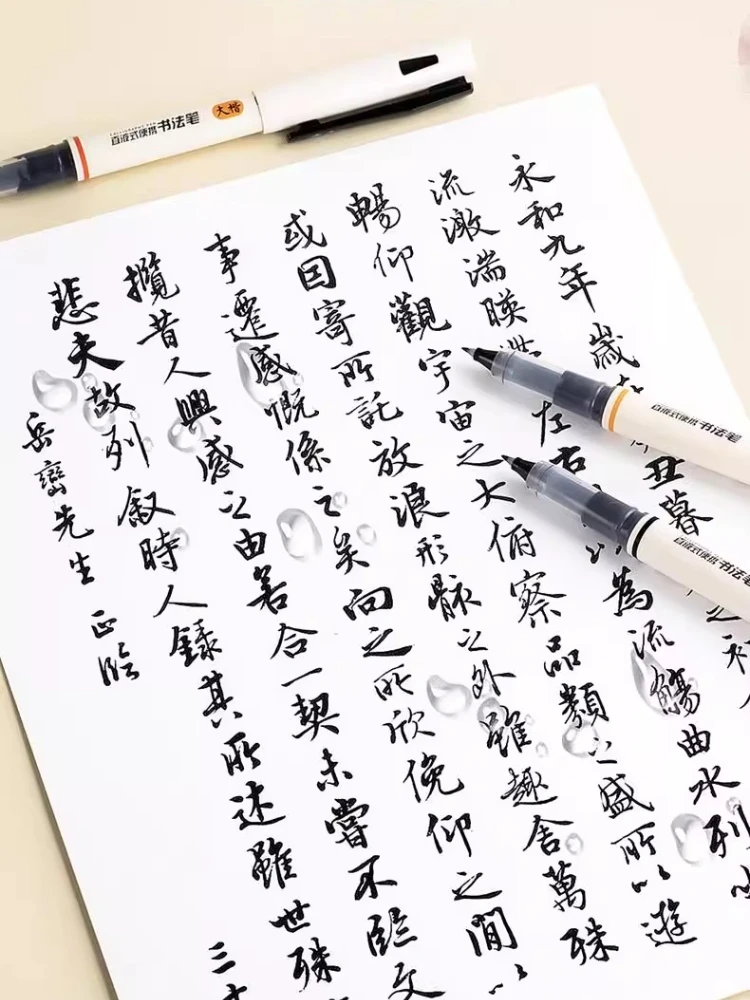 CALLIGRAPHY PEN
直液式便携书法笔 大楷
直液式便携书法笔
直液式便携书法笔
永和九年歲丑暮之初
流激湍暎左右以為流觴曲水列
暢仰觀宇宙之大俯察品類之盛所以遊
或因寄所託放浪形骸之外雖趣舍萬殊
事遷感慨係之矣向之所欣俛仰之間以
攬昔人興感之由若合一契未嘗不臨文
悲夫故列敘時人錄其所述雖世殊
三
岳巒先生 正臨